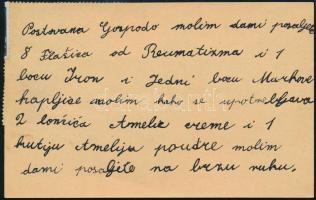 Postovana Gospodo molim dami posaljete
8 Flašica od Reumatizma i 1
bocu Iron i Jednu bocu Markove
kapljice molim kako se upotrebljava
2 lončića Amelie creme i 1
kutiju Amelija poudre molim
dami posaljete na brzu ruku.